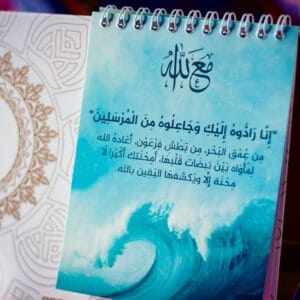 مع الله
"إِنَّا رَادُّوهُ إِلَيْكِ وَجَاعِلُوهُ مِنَ الْمُرْسَلِينَ"
مِن عُمْقِ البَحْر، مِن بَطْشِ فِرْعَوْن، أَعَادَهُ الله
لِمَأْوَاه بَيْنَ نَبَضَاتِ قَلْبِهَا، أَمِحْنَتك أَكْبَر؟ لَا
مِحْنَة إِلَّا وَيَكْشِفُهَا اليَقِين بِالله.